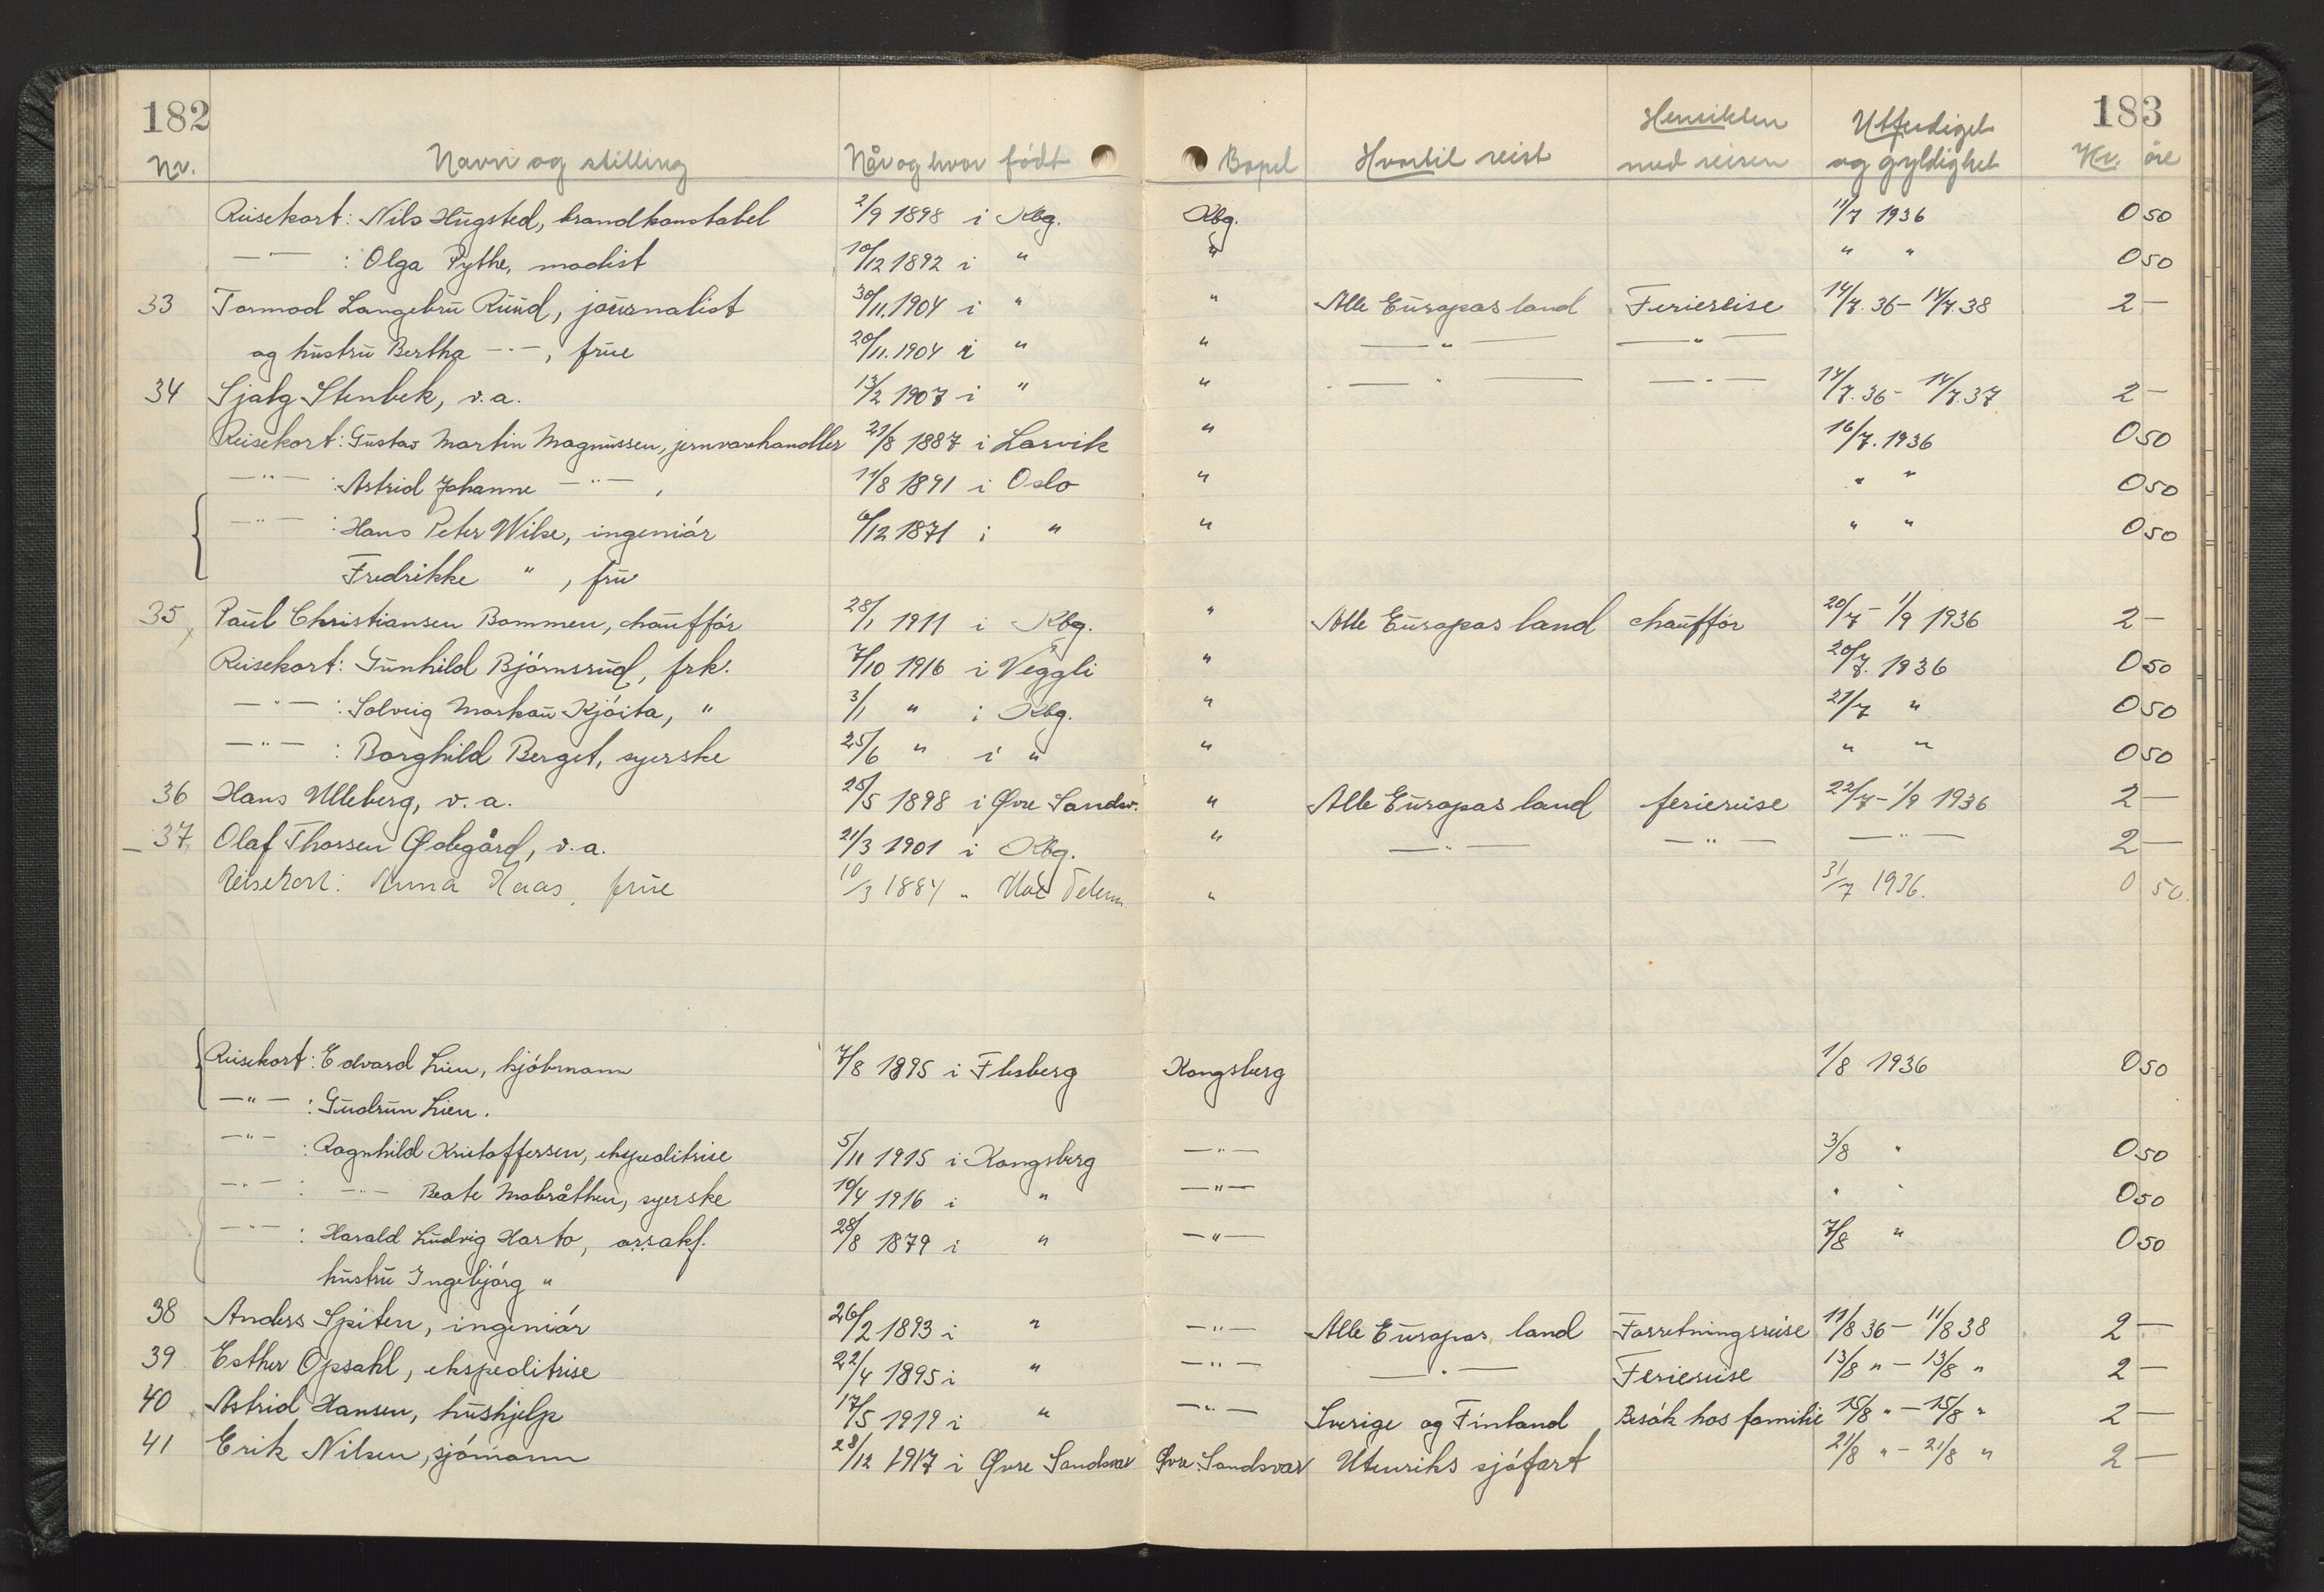 182 183
Nr. Navn og stilling Når og hvor födt Bopel Hvortil reist Hensikten med reisen Utferdiget og gyldighet Kr. öre
Reisekort: Nils Hugsted, brandkonstabel 2/9 1898 i Kbg. Kbg. 11/7 1936 0 50
—"— : Olga Pythe, modist 10/12 1892 i " " " " 0 50
33 Tormod Langebru Ruud, journalist 30/11.1904 i " " Alle Europas land Feriereise 14/7.36 – 14/7.38 2 —
og hustru Bertha —"—, frue 20/11.1904 i " " —"— —"—
34 Sjalg Stenbek, v.a. 13/2 1907 i " " —"— —"— 14/7.36 – 14/7.37 2 —
Reisekort: Gustav Martin Magnussen, jernvarehandler 21/8 1887 i Larvik " 16/7.1936 0 50
—"— : Astrid Johanne —"—, 11/8 1891 i Oslo " " " 0 50
—"— : Hans Peter Wilse, ingeniör 6/12 1871 i " " " " 0 50
Fredrikke " , fru
35 Paul Christiansen Bommen, chaufför 28/1 1911 i Kbg. " Alle Europas land chaufför 20/7 – 1/9 1936 2 —
Reisekort: Gunhild Björnsrud, frk. 7/10 1916 i Veggli " 20/7.1936 0 50
—"— : Solveig Moskau Kjöita, " 3/1 " i Kbg. " 21/7 " 0 50
—"— : Borghild Berget, syerske 25/6 " i " " " " 0 50
36 Hans Ulleberg, v.a. 25/5 1898 i Øvre Sandsv. " Alle Europas land feriereise 22/7 – 1/9 1936 2 —
37 Olaf Thorsen Ødegård, v.a. 21/3 1901 i Kbg. " —"— —"— —"— 2 —
Reisekort: Anna Haas, frue 10/3 1884 " Telem. " 31/7 1936. 0 50.
Reisekort: Edvard Lien, kjöbmann 7/8 1895 i Flesberg Kongsberg 1/8 1936 0 50
—"— : Gudrun Lien.
—"— : Ragnhild Kristoffersen, ekspeditrise 5/11 1915 i Kongsberg —"— 3/8 " 0 50
—"— : —"— Beate Mobråthen, syerske 10/4 1916 i " —"— " " 0 50
—"— : Harald Ludvig Harto, 28/8 1879 i " —"— 7/8 " 0 50
hustru Ingebjörg "
38 Anders Spiten, ingeniör 26/2 1893 i " —"— Alle Europas land Forretningsreise 11/8 36 – 11/8 38 2 —
39 Esther Opsahl, ekspeditrise 22/4 1895 i " —"— —"— Feriereise 13/8 " – 13/8 " 2 —
40 Astrid Hansen, hushjelp 17/5 1919 i " —"— Sverige og Finland Besök hos familie 15/8 " – 15/8 " 2 —
41 Erik Nilsen, sjömann 28/12 1917 i Øvre Sandsvar Øvre Sandsvar Utenriks sjöfart 21/8 " – 21/8 " 2 —